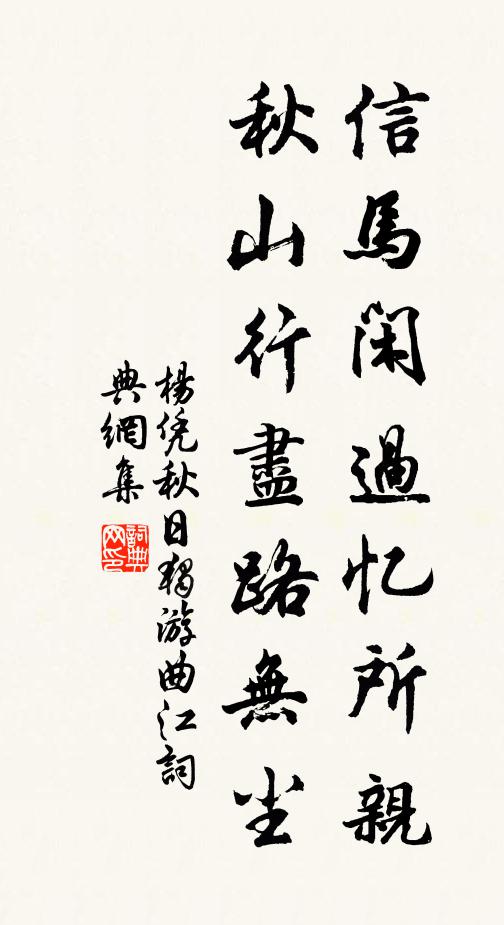 信馬閑過忆所親
秋山行盡路無尘
楊凭秋日獨游曲江詞
典網集
詞典
网印